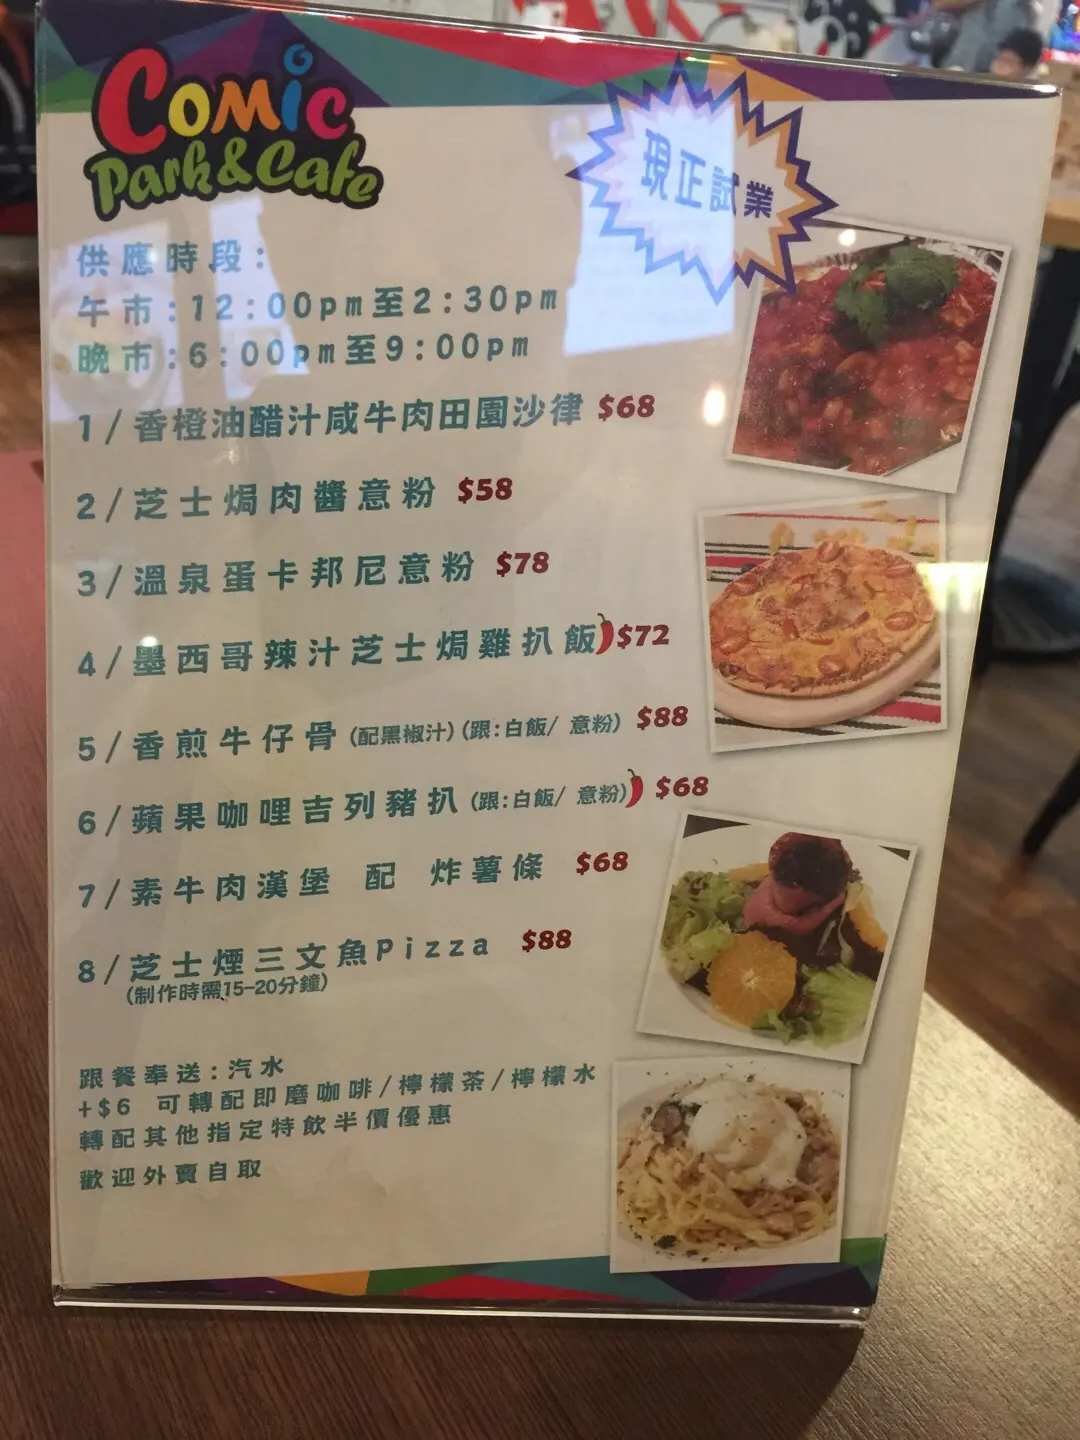 Comic
Park & Cafe
現正試業
供應時段:
午市:12:00pm至2:30pm
晚市:6:00pm至9:00pm
1/香橙油醋汁咸牛肉田園沙律 $68
2/芝士焗肉醬意粉 $58
3/溫泉蛋卡邦尼意粉 $78
4/墨西哥辣汁芝士焗雞扒飯 $72
5/香煎牛仔骨(配黑椒汁)(跟:白飯/ 意粉) $88
6/蘋果咖哩吉列豬扒(跟:白飯/ 意粉) $68
7/素牛肉漢堡 配 炸薯條 $68
8/芝士煙三文魚Pizza $88
(制作時需15-20分鐘)
跟餐奉送:汽水
+$6 可轉配即磨咖啡/檸檬茶/檸檬水
轉配其他指定特飲半價優惠
歡迎外賣自取